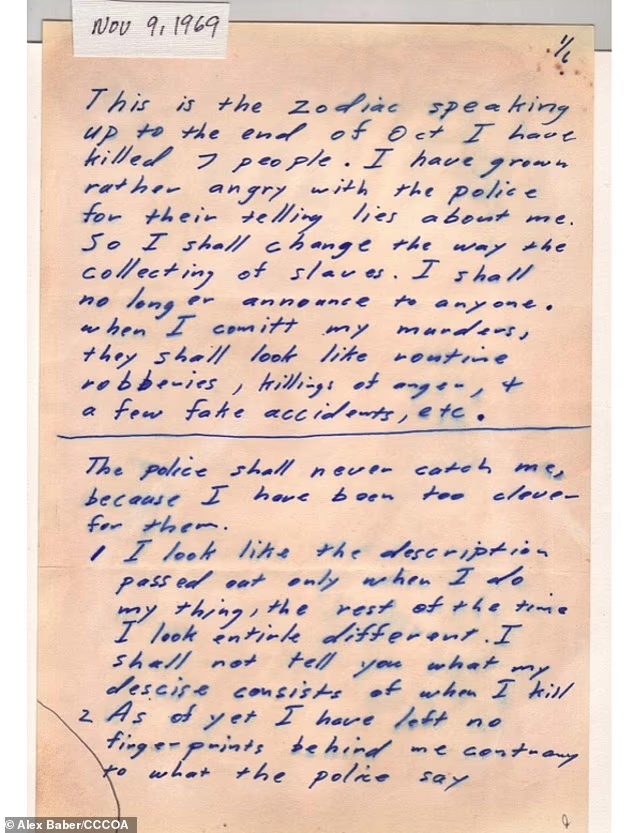 NOV 9, 1969
1/6
This is the zodiac speaking
up to the end of Oct I have
killed 7 people. I have grown
rather angry with the police
for their telling lies about me.
So I shall change the way the
collecting of slaves. I shall
no longer announce to anyone.
when I comitt my murders,
they shall look like routine
robberies, killings of anger, +
a few fake accidents, etc.
The police shall never catch me,
because I have been too clever
for them.
1 I look like the description
passed out only when I do
my thing, the rest of the time
I look entirle different. I
shall not tell you what my
descise consists of when I kill
2 As of yet I have left no
fingerprints behind me contrary
to what the police say
© Alex Baber/CCCOA